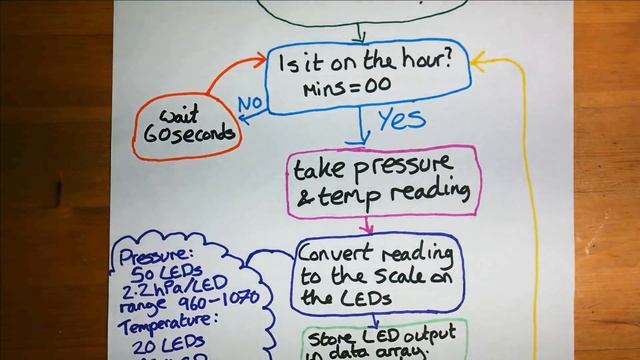 Is it on the hour?
Mins = 00
NO
Yes
wait
60 seconds
take pressure
& temp reading
Convert reading
to the scale on
the LEDs
Pressure:
50 LEDs
2.2hPa/LED
range 960-1070
Temperature:
20 LEDs
Store LED output
in data array